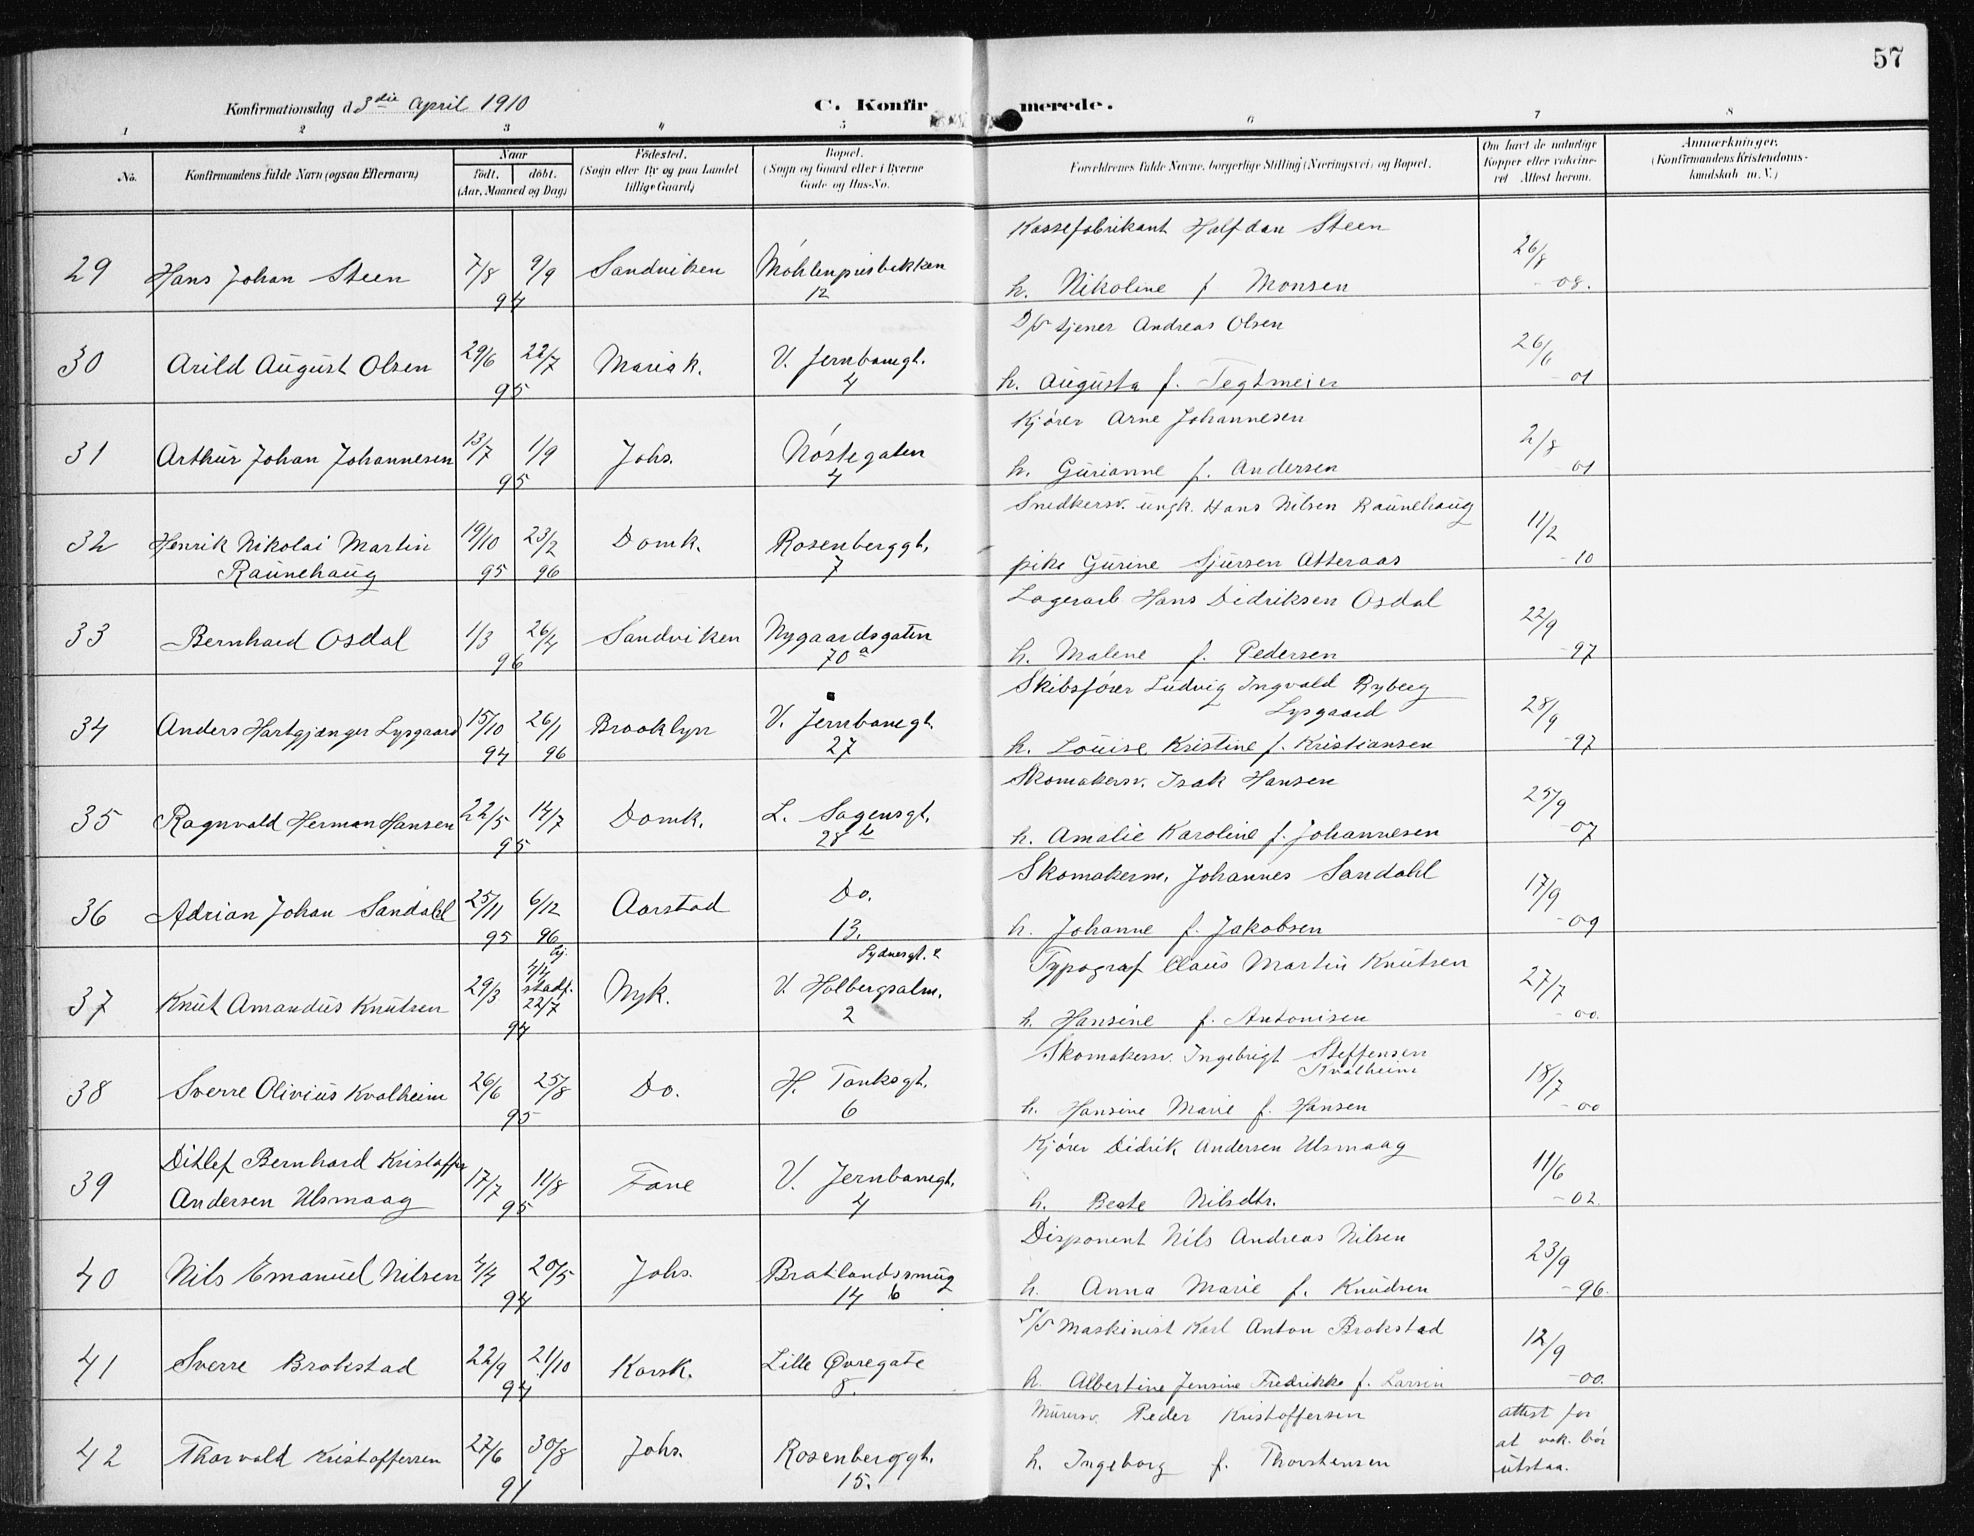 57
Konfirmationsdag d. 3die April 1910
C. Konfirmerede.
1 2 3 4 5 6 7 8
No.
Konfirmandens fulde Navn (ogsaa Efternavn)
Naar
født. døbt.
(Aar, Maaned og Dag)
Fødested.
(Sogn eller By og paa Landet
tillige Gaard)
Bopæl.
(Sogn og Gaard eller i Byerne
Gade og Hus-No.
Forældrenes fulde Navne, borgerlige Stilling (Næringsvei) og Bopæl.
Om havt de naturlige
Kopper eller vaccine-
ret Attest herom.
Anmærkninger.
(Konfirmandens Kristendoms-
kundskab m. V.)
Kassefabrikant Halfdan Steen
29 Hans Johan Steen 7/8 9/9 Sandviken Møhlenprisbakken 26/8
94 12 h. Nikoline f. Monsen - 08.
D/S tjener Andreas Olsen
30 Arild August Olsen 29/6 22/7 Mariak. V. Jernbanegt. 26/6
95 4 h. Augusta f. Tegtmeier - 01
Kjører Arne Johannesen
31 Arthur Johan Johannesen 13/7 1/9 Johs. Nøstegaten 2/8
95 4 h. Gurianne f. Andersen - 01
Snedkersv. ungk. Hans Nilsen Raunehaug
32 Henrik Nikolai Martin 19/10 23/2 Domk. Rosenberggt. 11/2
Raunehaug 95 96 7 pike Gurine Sjursen Atteraas - 10
Lagerarb. Hans Didriksen Osdal
33 Bernhard Osdal 1/3 26/4 Sandviken Nygaardsgaten 22/9
96 70a h. Malene f. Pedersen - 97
Skibsfører Ludvig Ingvald Ryberg
Lysgaard
34 Anders Hartgjænger Lysgaard 15/10 26/1 Brooklyn V. Jernbanegt. 28/9
94 96 27 h. Louise Kristine f. Kristiansen - 97
Skomakersv. Isak Hansen
35 Ragnvald Herman Hansen 22/5 14/7 Domk. L. Sagensgt. 25/9
95 28b h. Amalie Karoline f. Johannesen - 07
Skomakerm. Johannes Sandahl
36 Adrian Johan Sandahl 25/11 6/12 Aarstad Do. 17/9
95 96 13. h. Johanne f. Jakobsen - 09
Sydnesgt. 2
Typograf Claus Martin Knutsen
37 Knut Amandus Knutsen 29/3 hj. 4/4 stadf. 22/7 Nyk. V. Holbergsalm. 27/7
94 2 h. Hansine f. Antonisen - 00.
Skomakersv. Ingebrigt Steffensen
Kvalheim
38 Sverre Olivius Kvalheim 26/6 25/8 Do. H. Tanksgt. 18/7
95 6 h. Hansine Marie f. Hansen - 00
Kjører Didrik Andersen Ulsmaag
39 Ditlef Bernhard Kristoffer
Andersen Ulsmaag 17/7 11/8 Fane V. Jernbanegt. 11/6
95 4 h. Beate Nilsdtr. - 02.
Disponent Nils Andreas Nilsen
40 Nils Emanuel Nilsen 4/4 20/5 Johs. Bratlandssmug 23/9
94 14 b h. Anna Marie f. Knudsen - 96.
S/S Maskinist Karl Anton Brokstad
41 Sverre Brokstad 22/9 21/10 Korsk. Lille Øvregate 12/9
94 8. h. Albertine Jensine Fredrikke f. Larsen - 00.
Murersv. Peder Kristoffersen
42 Thorvald Kristoffersen 27/6 30/8 Johs. Rosenberggt. attest for
at vak. bør
91 15. h. Ingeborg f. Thorstensen utstaa.